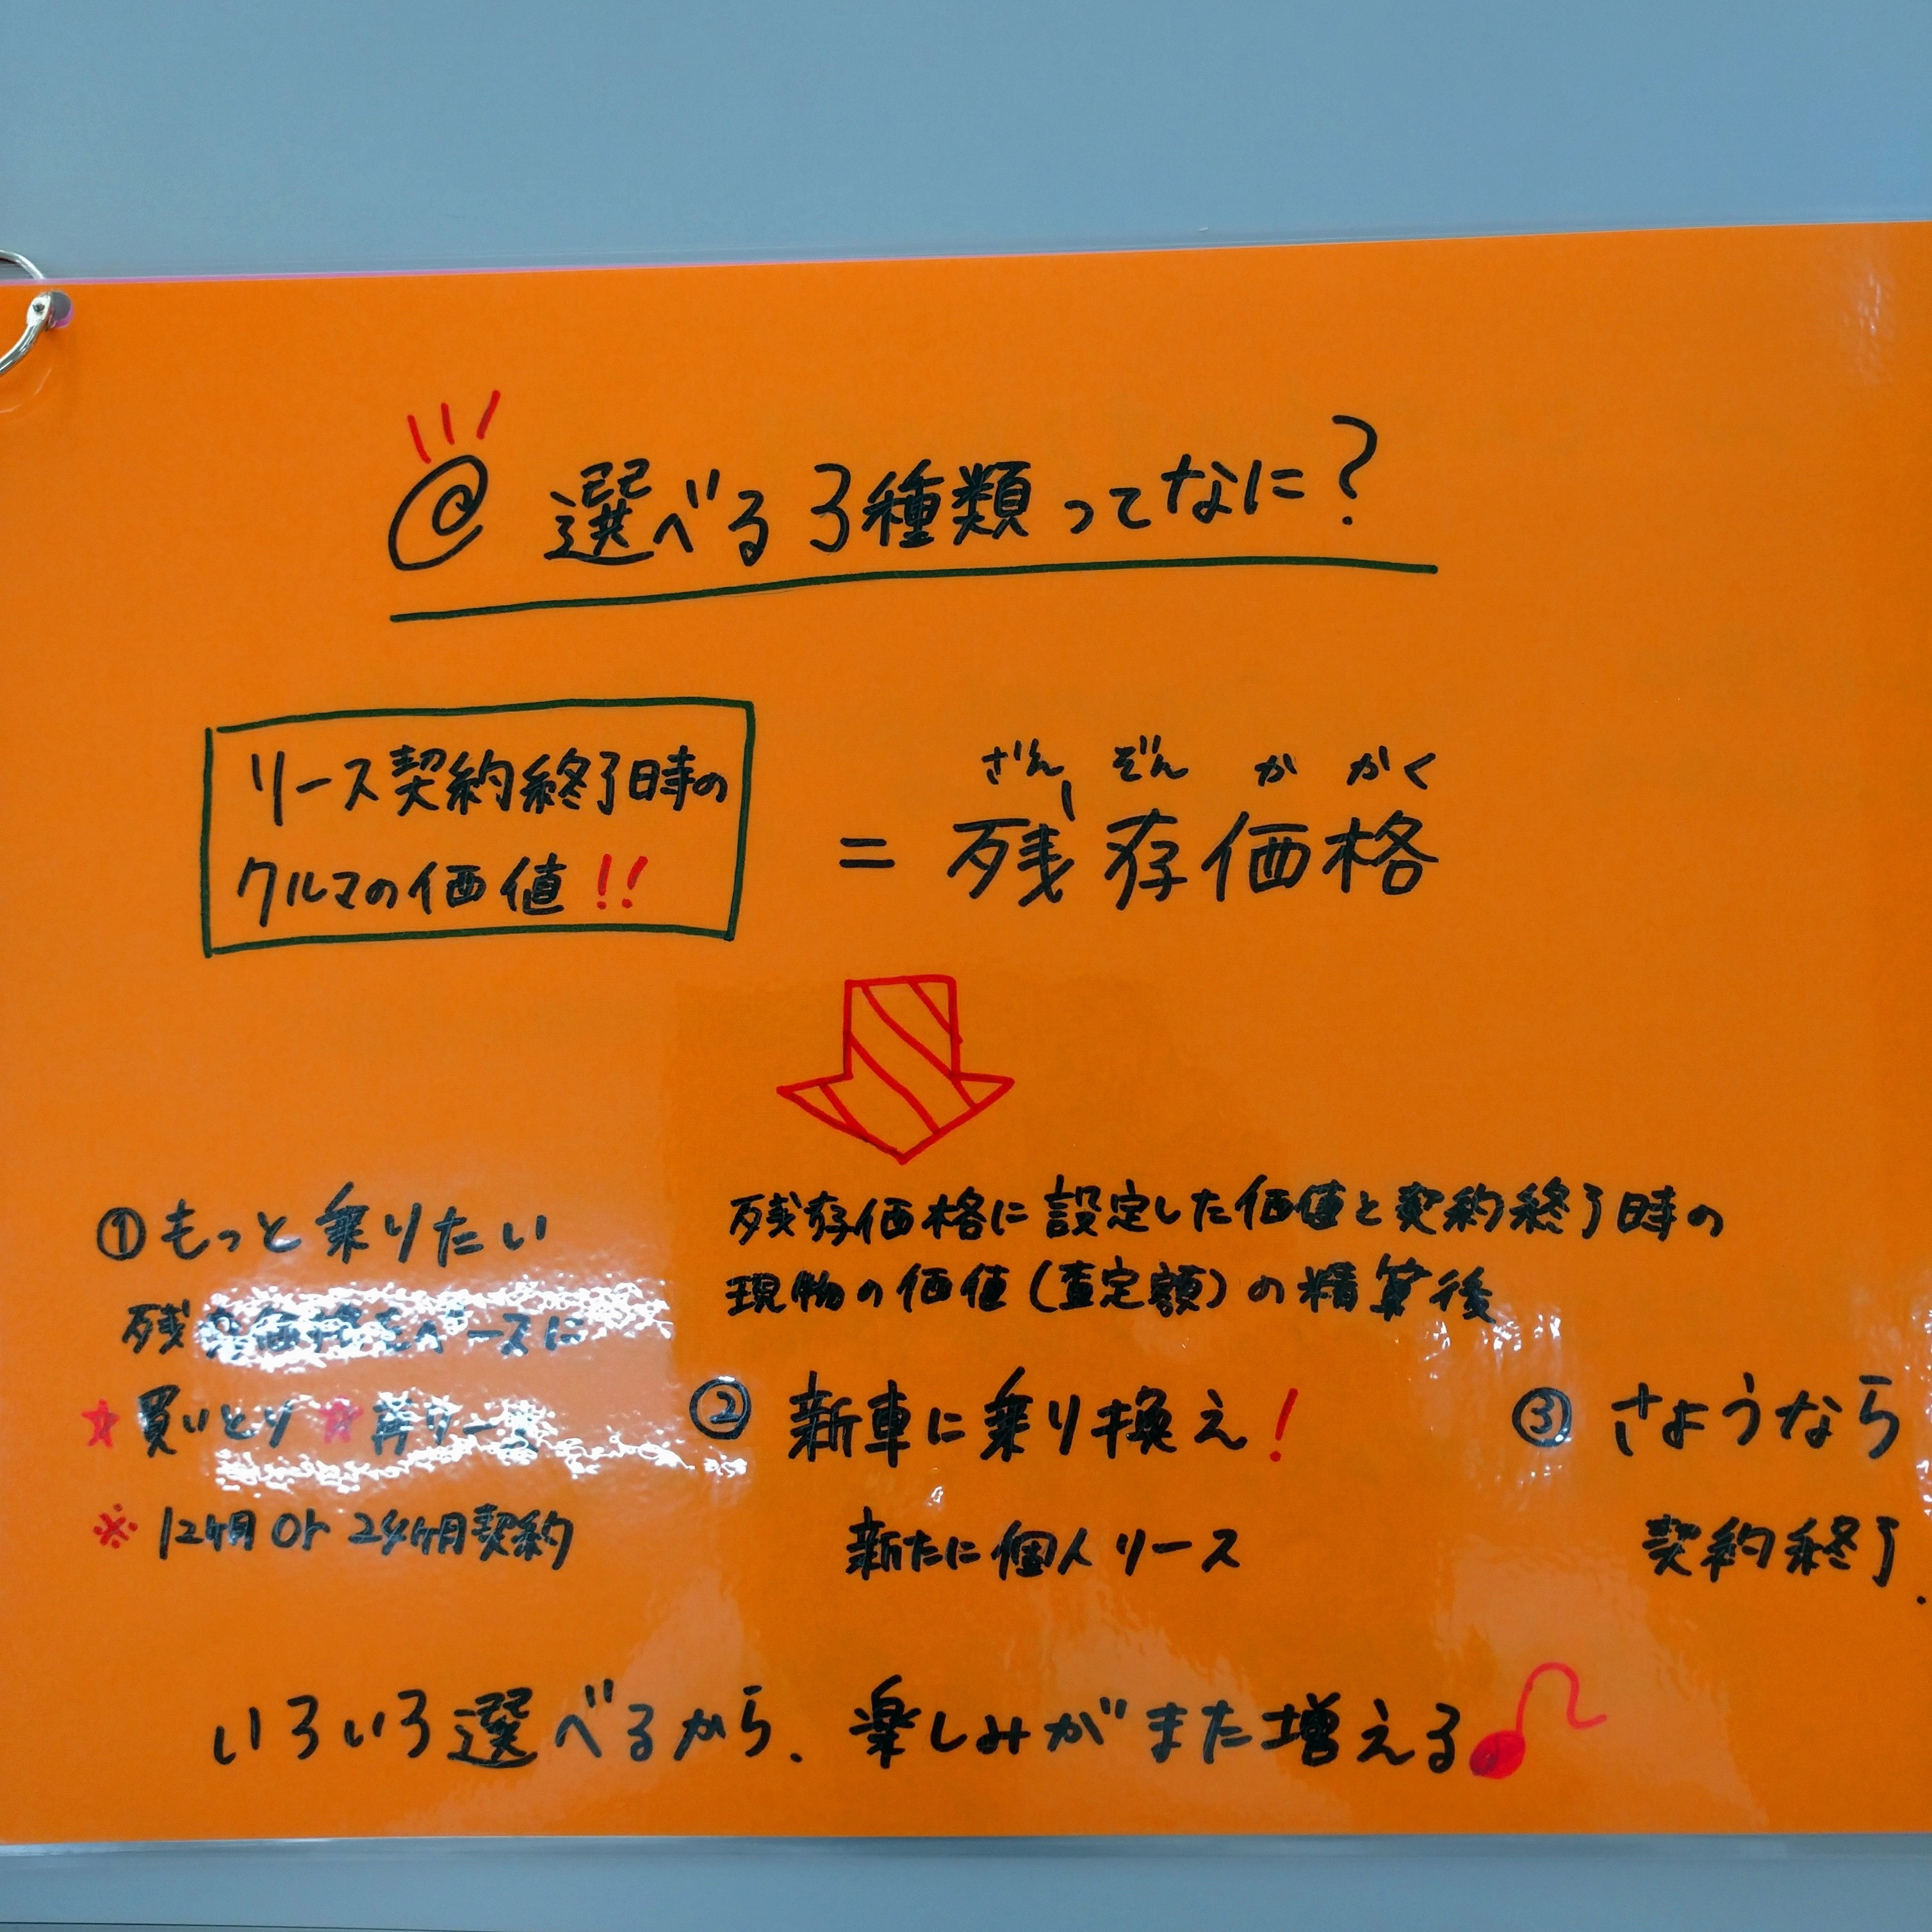 選べる3種類ってなに?
リース契約終了時の
クルマの価値!!
=
ざん ぞん か かく
残存価格
①もっと乗りたい
残存価格をベースに
★買いとり ★再リース
※12ヶ月 or 24ヶ月契約
残存価格に設定した価値と契約終了時の
現物の価値(査定額)の精算後
②新車に乗り換え!
新たに個人リース
③さようなら
契約終了.
いろいろ選べるから、楽しみがまた増える♪